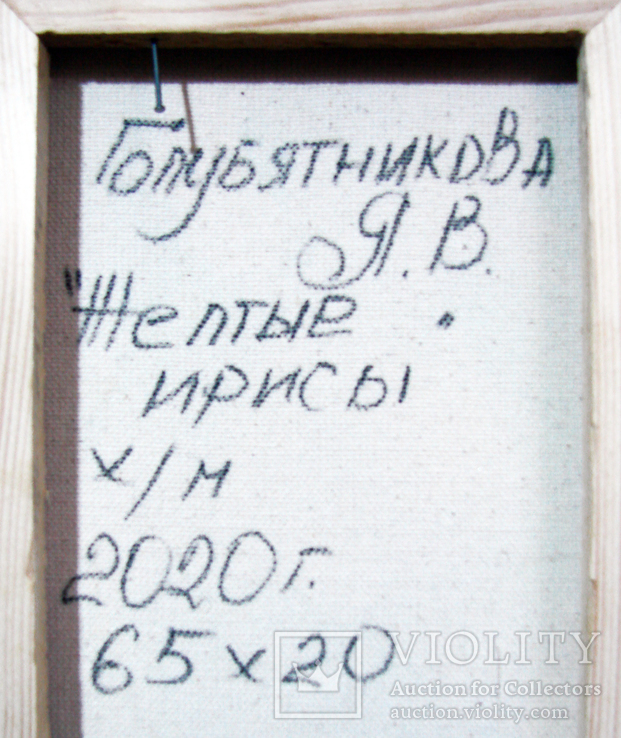 Голубятникова
Я. В.
"Желтые "
ирисы
х/м
2020 г.
65 х 20
VIOLITY
Auction for Collectors
auction.violity.com